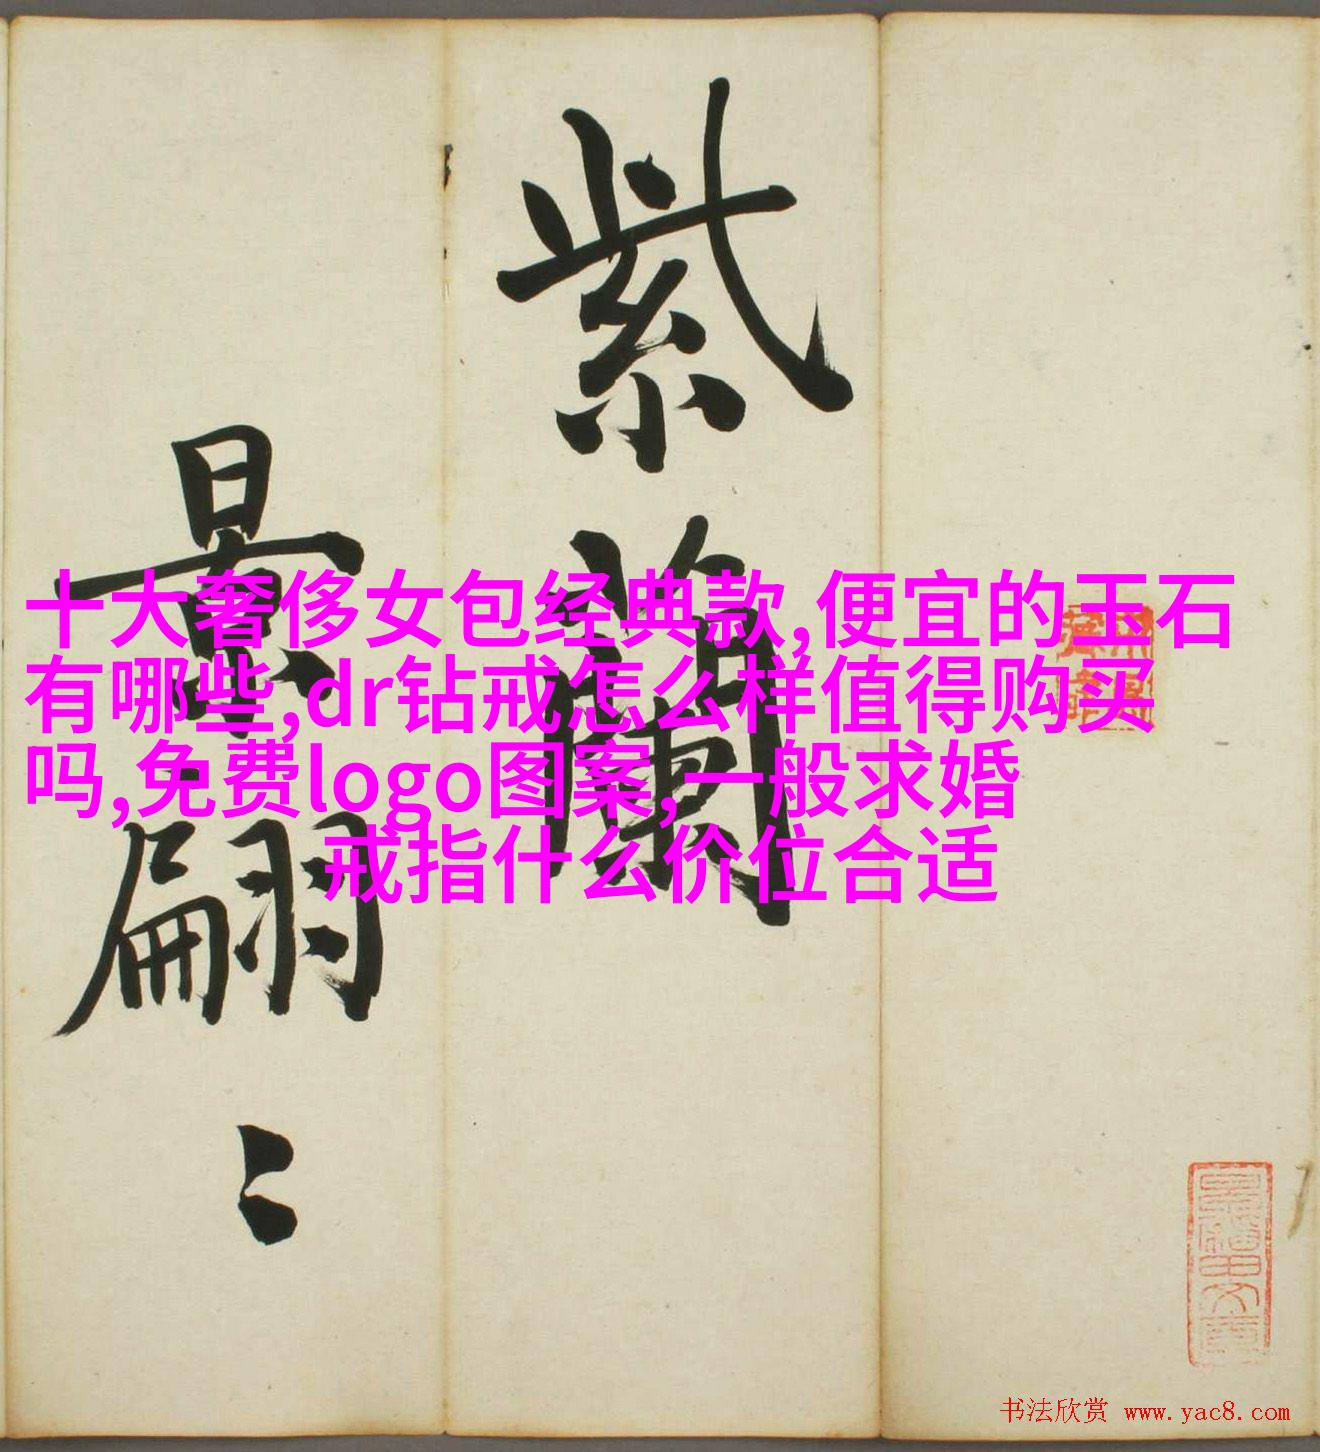 紫蘭
景翩〻
十大奢侈女包经典款,便宜的玉石
有哪些,dr钻戒怎么样值得购买
吗,免费logo图案,一般求婚
戒指什么价位合适
书法欣赏 www.yac8.com